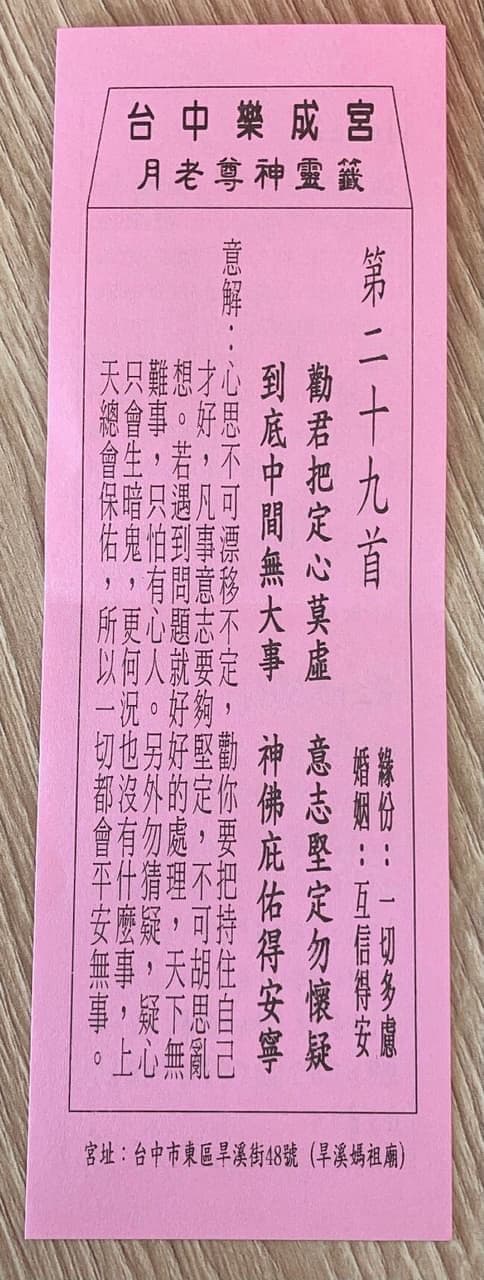 台中樂成宮
月老尊神靈籤
第二十九首
緣份：一切多慮
婚姻：互信得安
勸君把定心莫虛　意志堅定勿懷疑
到底中間無大事　神佛庇佑得安寧
意解：心思不可漂移不定，勸你要把持住自己
才好，凡事意志要夠堅定，不可胡思亂
想。若遇到問題就好好的處理，天下無
難事，只怕有心人。另外勿猜疑，疑心
只會生暗鬼，更何況也沒有什麼事，上
天總會保佑，所以一切都會平安無事。
宮址：台中市東區旱溪街48號（旱溪媽祖廟）